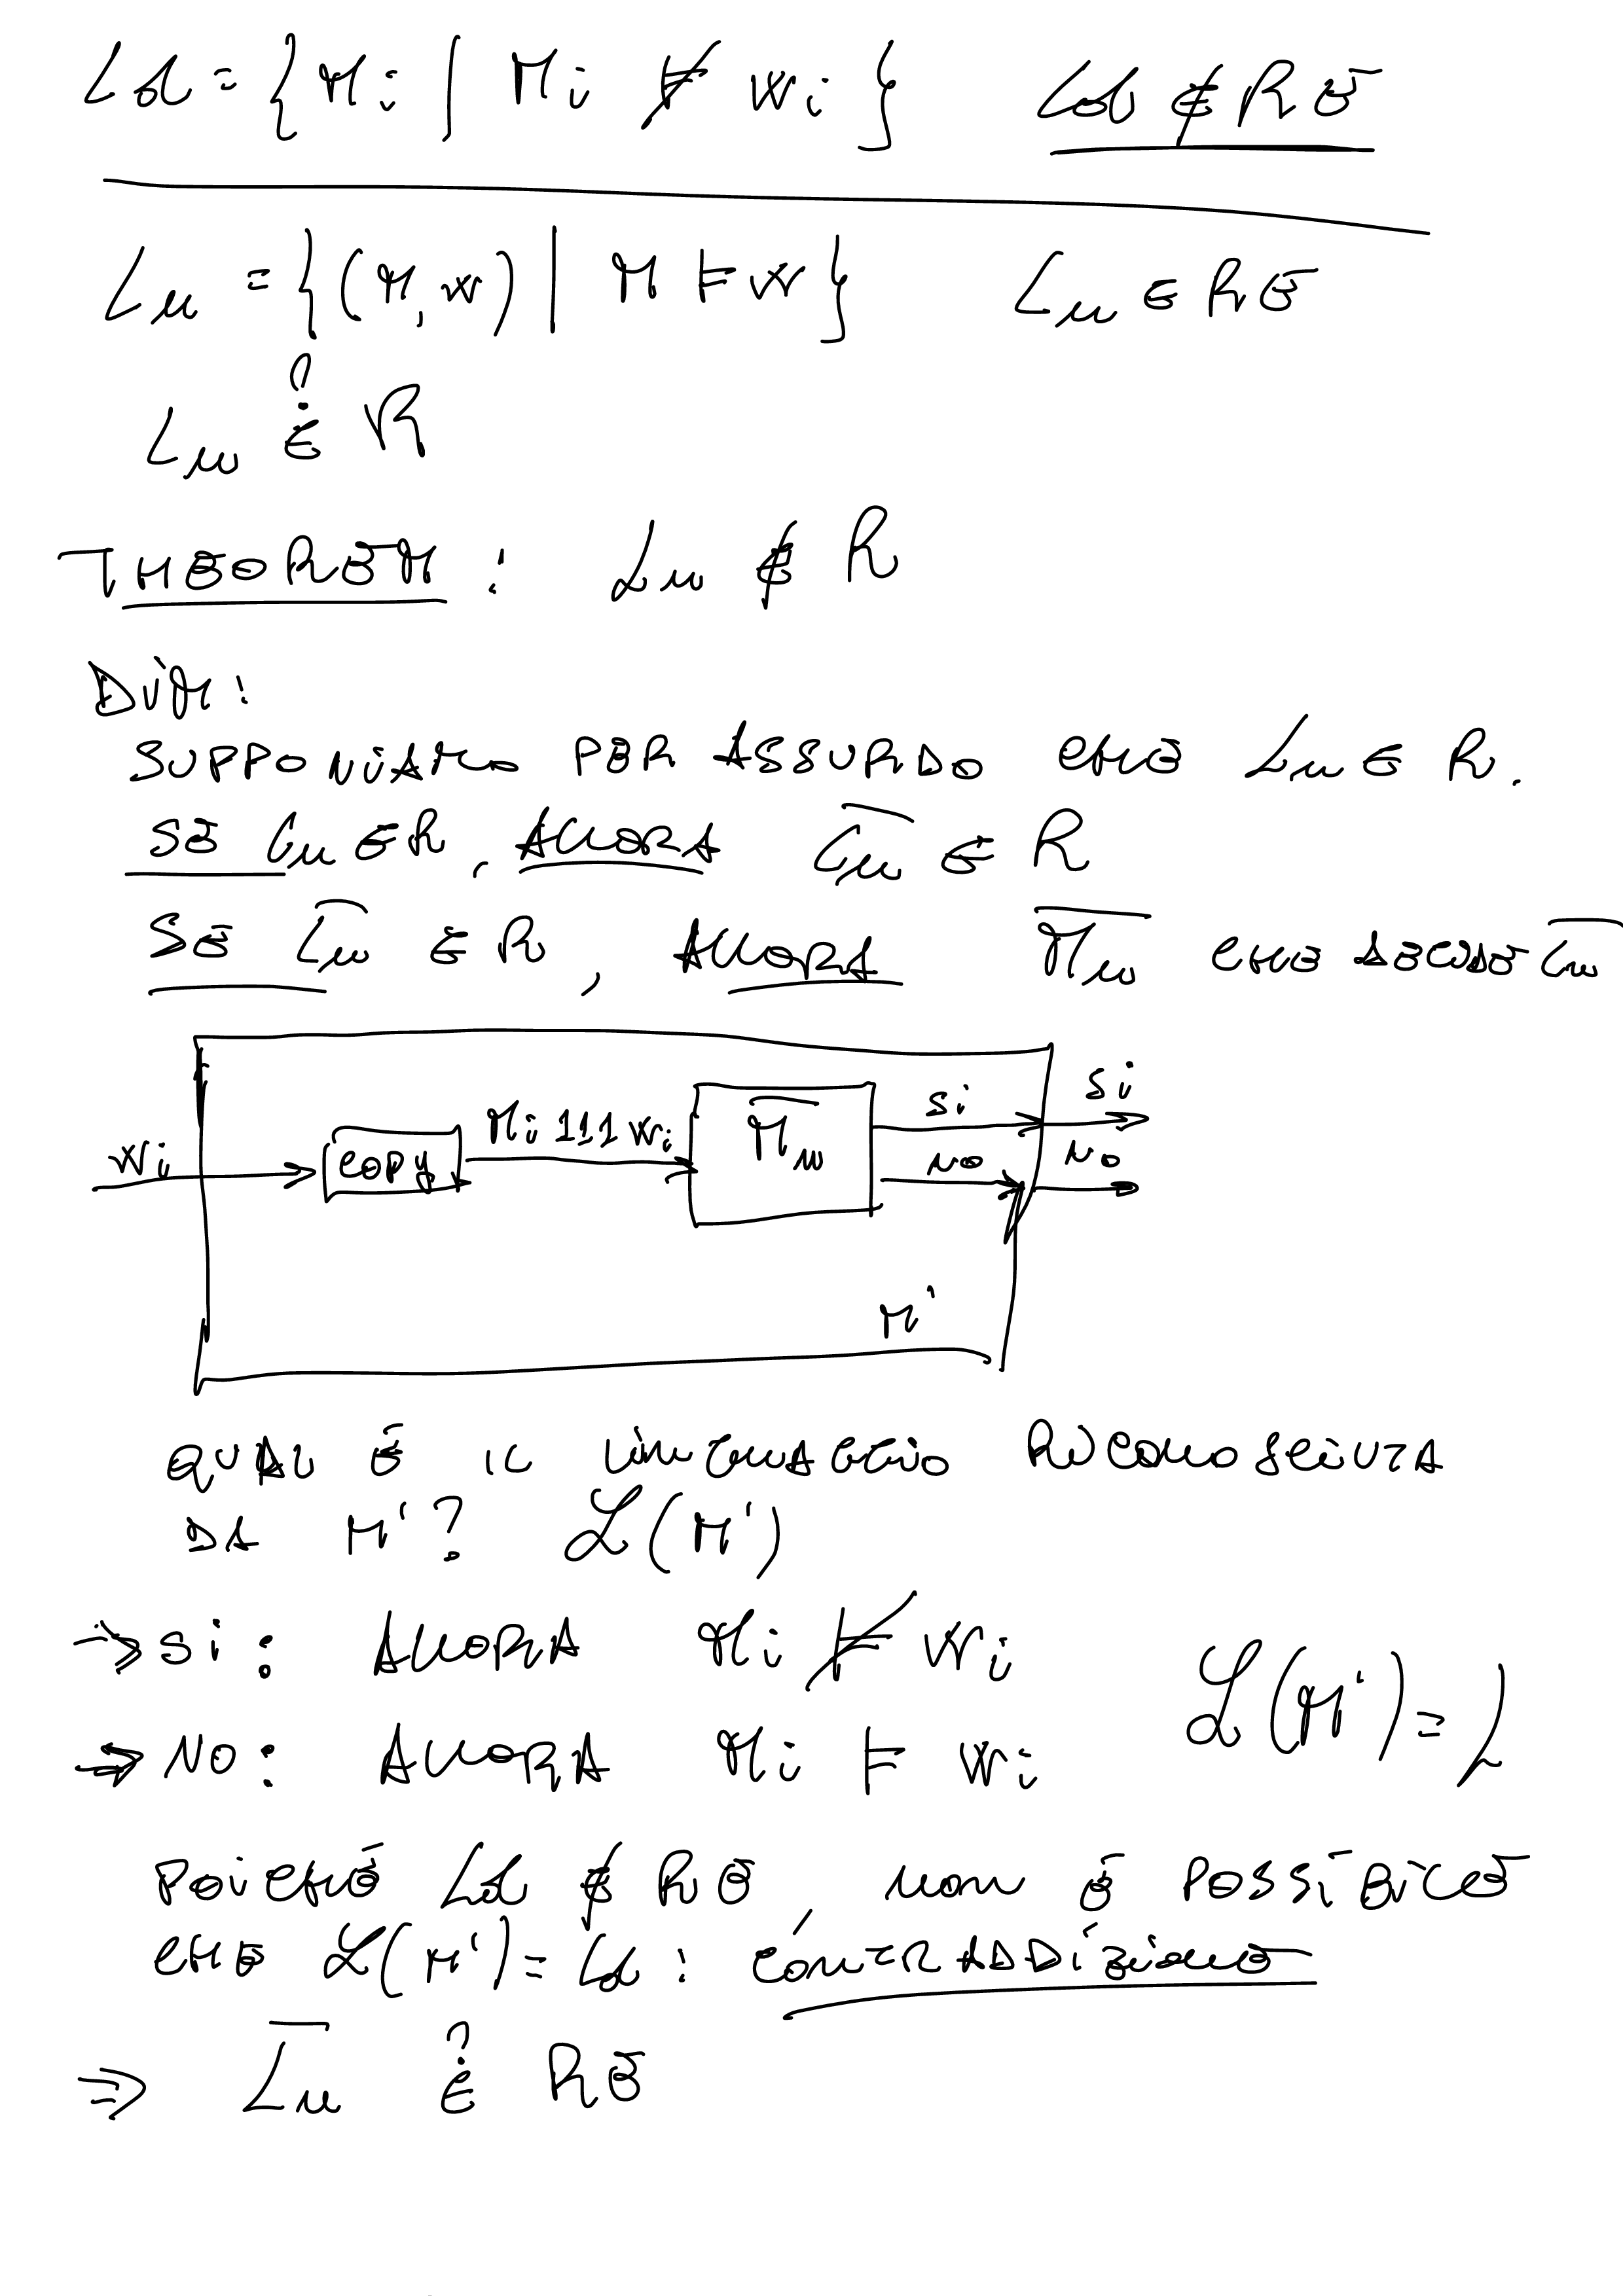 Ld = { Mi | Mi ⊭ wi }    Ld ∉ RE
Lu = { (M, w) | M ⊨ w }    Lu ∈ RE
?
Lu ∈ R
THEOREM : Lu ∉ R
DIM :
SUPPONIAMO PER ASSURDO CHE Lu ∈ R.
SE Lu ∈ R, ALLORA L̅u̅ ∈ R
SE L̅u̅ ∈ R, ALLORA M̅u̅ CHE DECIDE L̅u̅
wi
copy
Mi 111 wi
M̅u̅
si
no
si
no
M'
QUAL È IL LINGUAGGIO RICONOSCIUTA
DA M' ? ℒ(M')
→ si : ALLORA Mi ⊭ wi
⇒ NO : ALLORA Mi ⊨ wi
ℒ(M') = L
POICHÉ Ld ∉ RE, non È POSSIBILE
CHE ℒ(M') = Ld : CONTRADDIZIONE
?
⇒ L̅u̅ ∈ RE